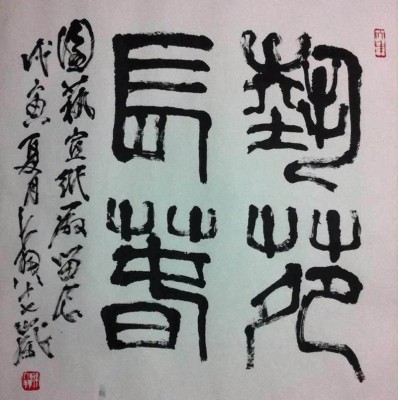 藝苑
長春
園藝宣紙廠留念
戊寅夏月